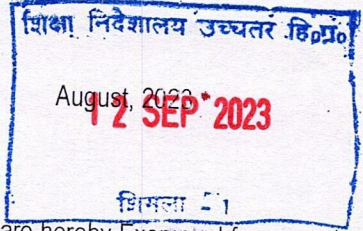 शिक्षा निदेशालय उच्चतर हि०प्र०
August, 2023
12 SEP 2023
शिमला - 1
are hereby